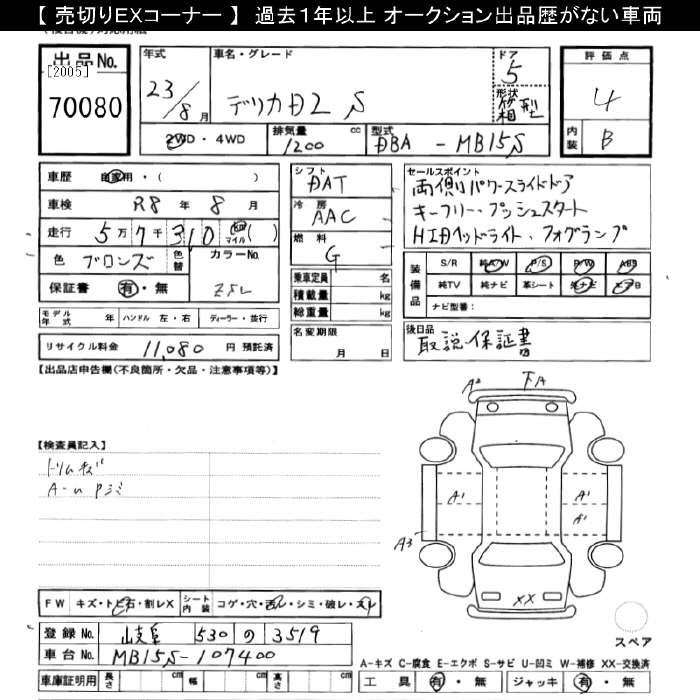 【 売切りEXコーナー 】 過去1年以上 オークション出品歴がない車両
出品No.
[2005]
70080
年式
23/8 月
車名・グレード
デリカD2 S
ドア
5
形状
箱型
評価点
4
内装
B
2WD・4WD
排気量
cc
1200
型式
DBA - MB15S
車歴 自家用・( )
車検 R8 年 8 月
走行 5万7千310 km マイル( )
色 ブロンズ 色替
カラーNo.
ZJL
保証書 有・無
モデル年式 年 ハンドル 左・右 ディーラー・並行
リサイクル料金 11,080 円 預託済
シフト
DAT
冷房
AAC
燃料
G
乗車定員 名
積載量 kg
総重量 kg
名変期限
月 日
セールスポイント
両側パワースライドドア
キーフリー・プッシュスタート
HIDヘッドライト・フォグランプ
装備品
S/R 純A/W P/S P/W ABS
純TV 純ナビ 革シート 社ナビ エアB
ナビ型番:
後日品
取説・保証書
【出品店申告欄(不良箇所・欠品・注意事項等)】
【検査員記入】
トリムキズ
FW キズ・トビ石・割レX シート内装 コゲ・穴・汚レ・シミ・破レ・スレ
登録No. 岐阜 530 の 3519
車台No. MB15S-107400
車庫証明用 長さ cm 幅 cm 高さ cm
A2
下A
A1
A1
A1
A3
XX
スペア
A-キズ C-腐食 E-エクボ S-サビ U-凹ミ W-補修 XX-交換済
工具 有・無 ジャッキ 有・無